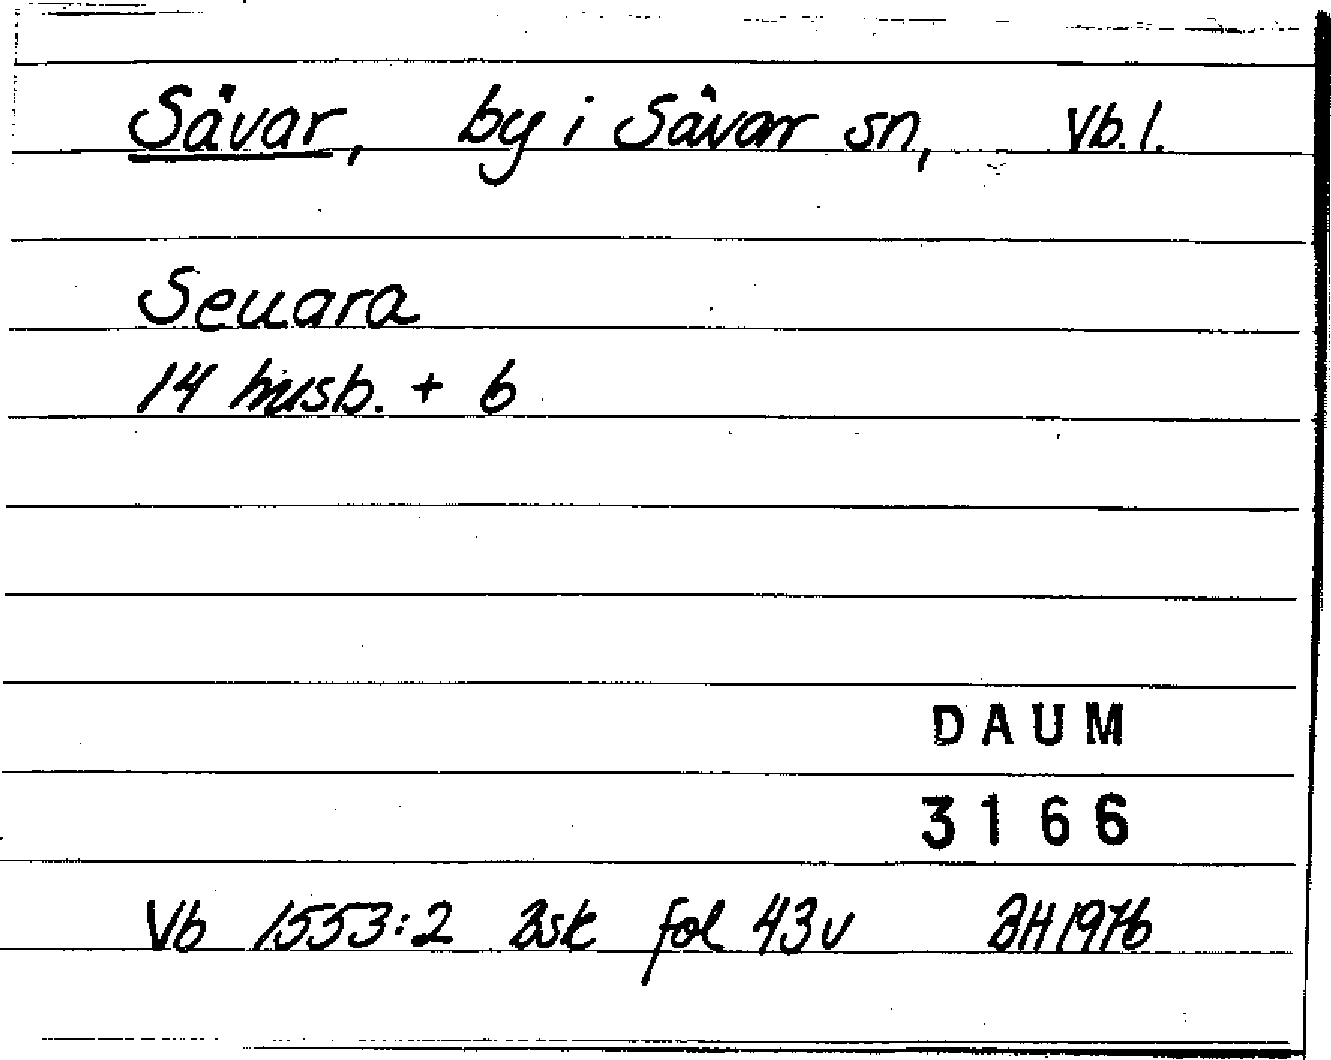 Sävar, by i Sävar sn, Vb. l.
Seuara
14 husb. + 6
DAUM
3166
Vb 1553:2 Bsk fol 43v BH 1976